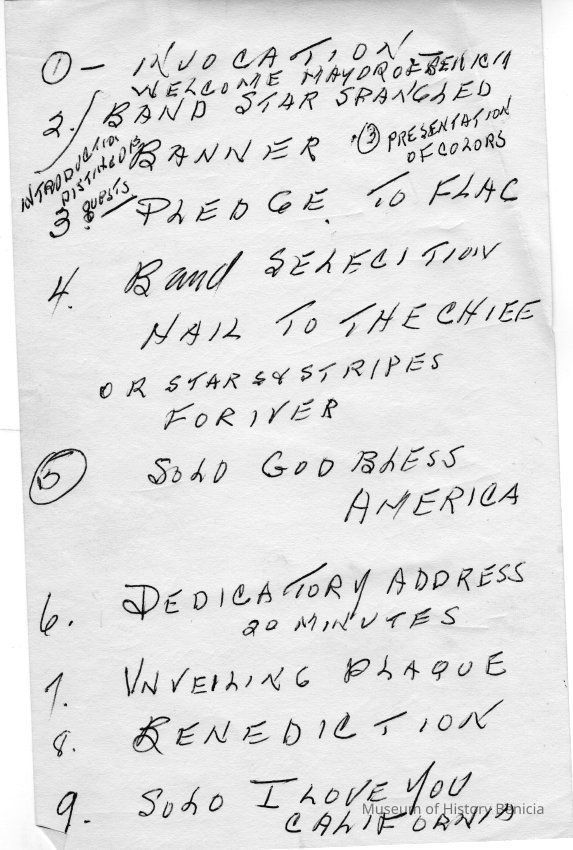 ① — INVOCATION
WELCOME MAYOR OF BENICIA
2. BAND STAR SPANGLED
BANNER ③ PRESENTATION
OF COLORS
INTRODUCTION
GUESTS
3 — PLEDGE TO FLAG
4. Band SELECITION
HAIL TO THE CHIEF
OR STARS & STRIPES
FORIVER
⑤ SOLO GOD BLESS
AMERICA
6. DEDICATORY ADDRESS
20 MINUTES
7. UNVEILING PLAQUE
8. BENEDICTION
9. SOLO I LOVE YOU
CALIFORNIA
Museum of History Benicia